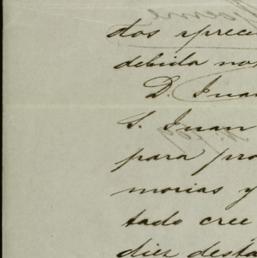 dos apreci
debida no
D. Juan
S. Juan
para pro
morias y
tado cree
diez desta